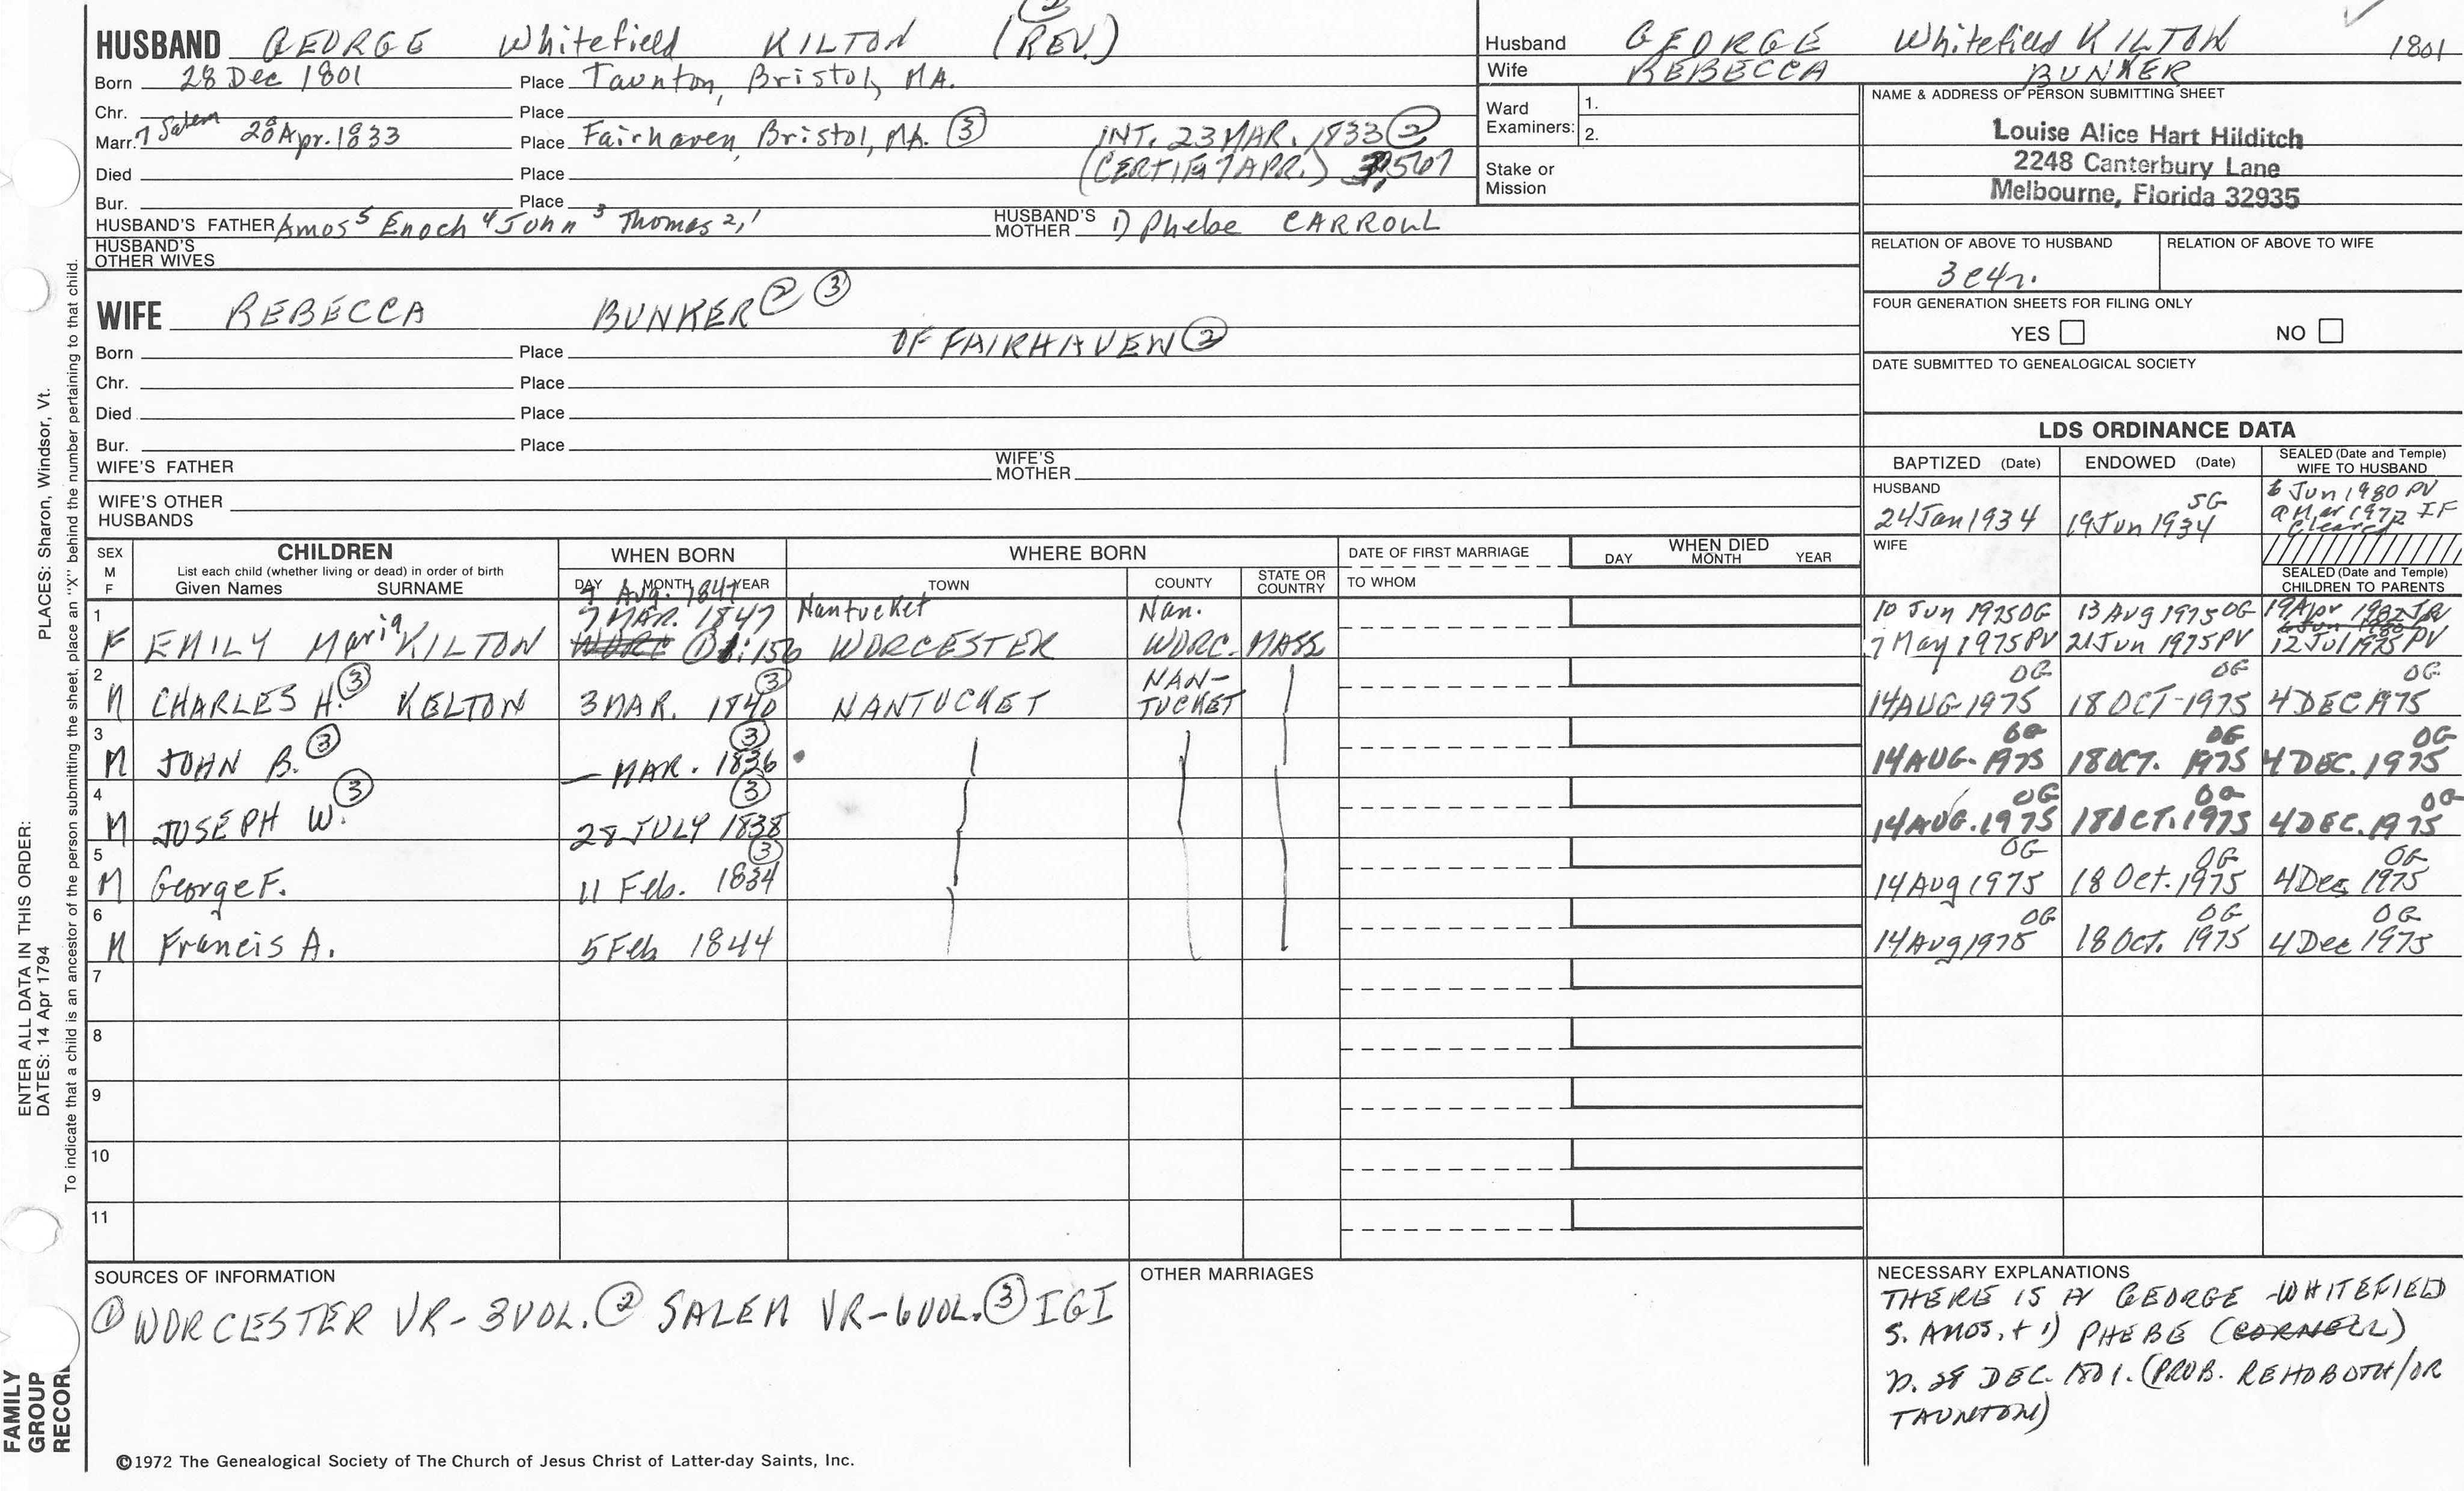 HUSBAND GEORGE Whitefield KILTON (REV.) ②
Born 28 Dec 1801 Place Taunton, Bristol, MA.
Chr. Place
Marr. 7 Salem 28 Apr. 1833 Place Fairhaven, Bristol, MA. ③ INT. 23 MAR. 1833 ②
Died Place (CERTIF 7 APR.) 3,567
Bur. Place
HUSBAND'S FATHER Amos 5 Enoch 4 John 3 Thomas 2,1 HUSBAND'S MOTHER 1) Phebe CARROLL
HUSBAND'S OTHER WIVES
WIFE REBECCA BUNKER ② ③
OF FAIRHAVEN ②
Born Place
Chr. Place
Died Place
Bur. Place
WIFE'S FATHER WIFE'S MOTHER
WIFE'S OTHER HUSBANDS
Husband GEORGE Whitefield KILTON 1801
Wife REBECCA BUNKER
Ward Examiners: 1.
2.
Stake or Mission
NAME & ADDRESS OF PERSON SUBMITTING SHEET
Louise Alice Hart Hilditch
2248 Canterbury Lane
Melbourne, Florida 32935
RELATION OF ABOVE TO HUSBAND RELATION OF ABOVE TO WIFE
3c4r.
FOUR GENERATION SHEETS FOR FILING ONLY
YES NO
DATE SUBMITTED TO GENEALOGICAL SOCIETY
LDS ORDINANCE DATA
BAPTIZED (Date) ENDOWED (Date) SEALED (Date and Temple) WIFE TO HUSBAND
HUSBAND 24 Jan 1934 19 Jun 1934 SG 6 Jun 1980 PV
9 Mar 1972 IF
Cleared
WIFE
SEALED (Date and Temple) CHILDREN TO PARENTS
SEX M F CHILDREN WHEN BORN WHERE BORN DATE OF FIRST MARRIAGE WHEN DIED
List each child (whether living or dead) in order of birth
Given Names SURNAME DAY MONTH YEAR TOWN COUNTY STATE OR COUNTRY TO WHOM DAY MONTH YEAR
7 Aug. 1847
1 7 MAR. 1847 Nantucket Nan. 10 Jun 1975 OG 13 Aug 1975 OG 19 Apr 1982 JR
F EMILY Maria KILTON ① 1:156 WORCESTER WORC. MASS 7 May 1975 PV 21 Jun 1975 PV 12 Jul 1975 PV
2 M CHARLES H. ③ KELTON 3 MAR. 1840 ③ NANTUCKET NAN-TUCKET 14 AUG 1975 OG 18 OCT-1975 OG 4 DEC 1975 OG
3 M JOHN B. ③ — MAR. 1836 ③ 14 AUG. 1975 OG 18 OCT. 1975 OG 4 DEC. 1975 OG
4 M JOSEPH W. ③ 28 JULY 1838 ③ 14 AUG. 1975 OG 18 OCT. 1975 OG 4 DEC. 1975 OG
5 M George F. 11 Feb. 1834 ③ 14 Aug 1975 OG 18 Oct. 1975 OG 4 Dec 1975 OG
6 M Francis A. 5 Feb 1844 14 Aug 1975 OG 18 Oct. 1975 OG 4 Dec 1975 OG
7
8
9
10
11
SOURCES OF INFORMATION
① WORCESTER VR-3VOL. ② SALEM VR-6VOL. ③ IGI
OTHER MARRIAGES
NECESSARY EXPLANATIONS
THERE IS A GEORGE WHITEFIELD
S. AMOS, + 1) PHEBE (CORNELL)
b. 28 DEC. 1801. (PROB. REHOBOTH/OR
TAUNTON)
©1972 The Genealogical Society of The Church of Jesus Christ of Latter-day Saints, Inc.
FAMILY
GROUP
RECORD
ENTER ALL DATA IN THIS ORDER:
DATES: 14 Apr 1794 PLACES: Sharon, Windsor, Vt.
To indicate that a child is an ancestor of the person submitting the sheet, place an "X" behind the number pertaining to that child.